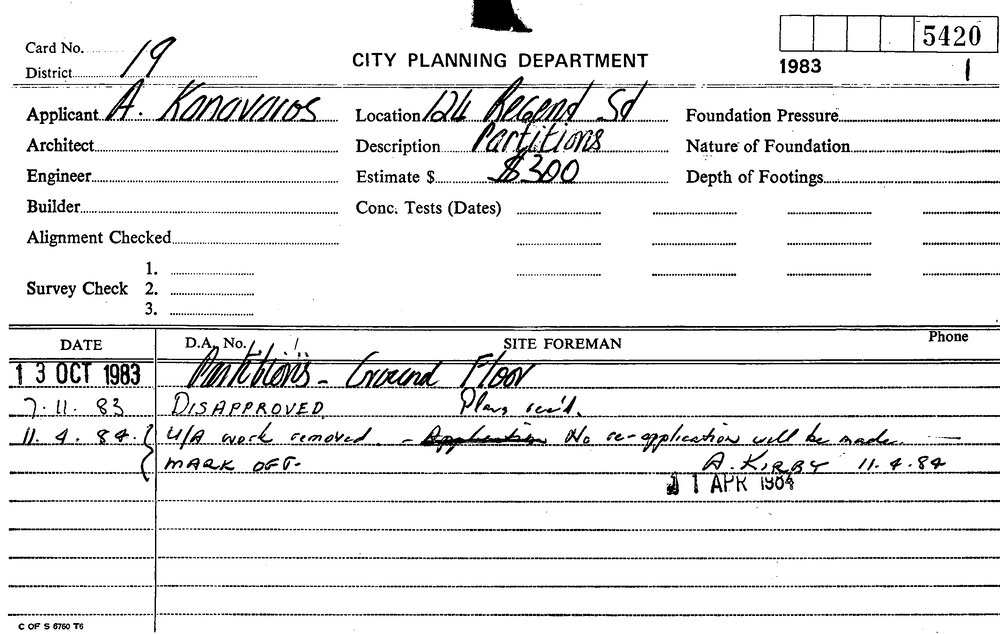 5420
Card No. 19
CITY PLANNING DEPARTMENT
1983 1
District
Applicant A. Kanavaros Location 124 Regend Sd Foundation Pressure
Architect Description Partitions Nature of Foundation
Engineer Estimate $ $300 Depth of Footings
Builder Conc. Tests (Dates)
Alignment Checked
1.
Survey Check 2.
3.
DATE D.A. No. SITE FOREMAN Phone
13 OCT 1983 Partitions - Ground Floor
7.11.83 DISAPPROVED. Plans rec'd.
11.4.84. U/A work removed. - Application No re-application will be made.
MARK OFF. A. KIRBY 11.4.84
11 APR 1984
C OF S 6760 T6